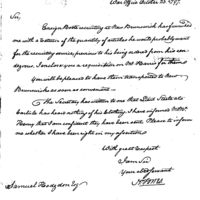 War Office October 23. 1797.
Sir,
Ensign Bott's recruiting at New Brunswick has furnished
me with a return of the quantity of articles he wants probably
for the recruiting service, previous to his being ordered from his ren
dezvous. I enclose you a requisition on Mr Harris for them
You will be pleased to have them transported to New
Brunswick as soon as convenient.
The Secretary has written to me that Lieut
Carlisle has heard nothing of his clothing. I have informed
that I am confident they have been sent. Please to inform
me whether I have been right in my
With great respect
I am Sir
Your obt servant
Samuel Hodgdon Esq